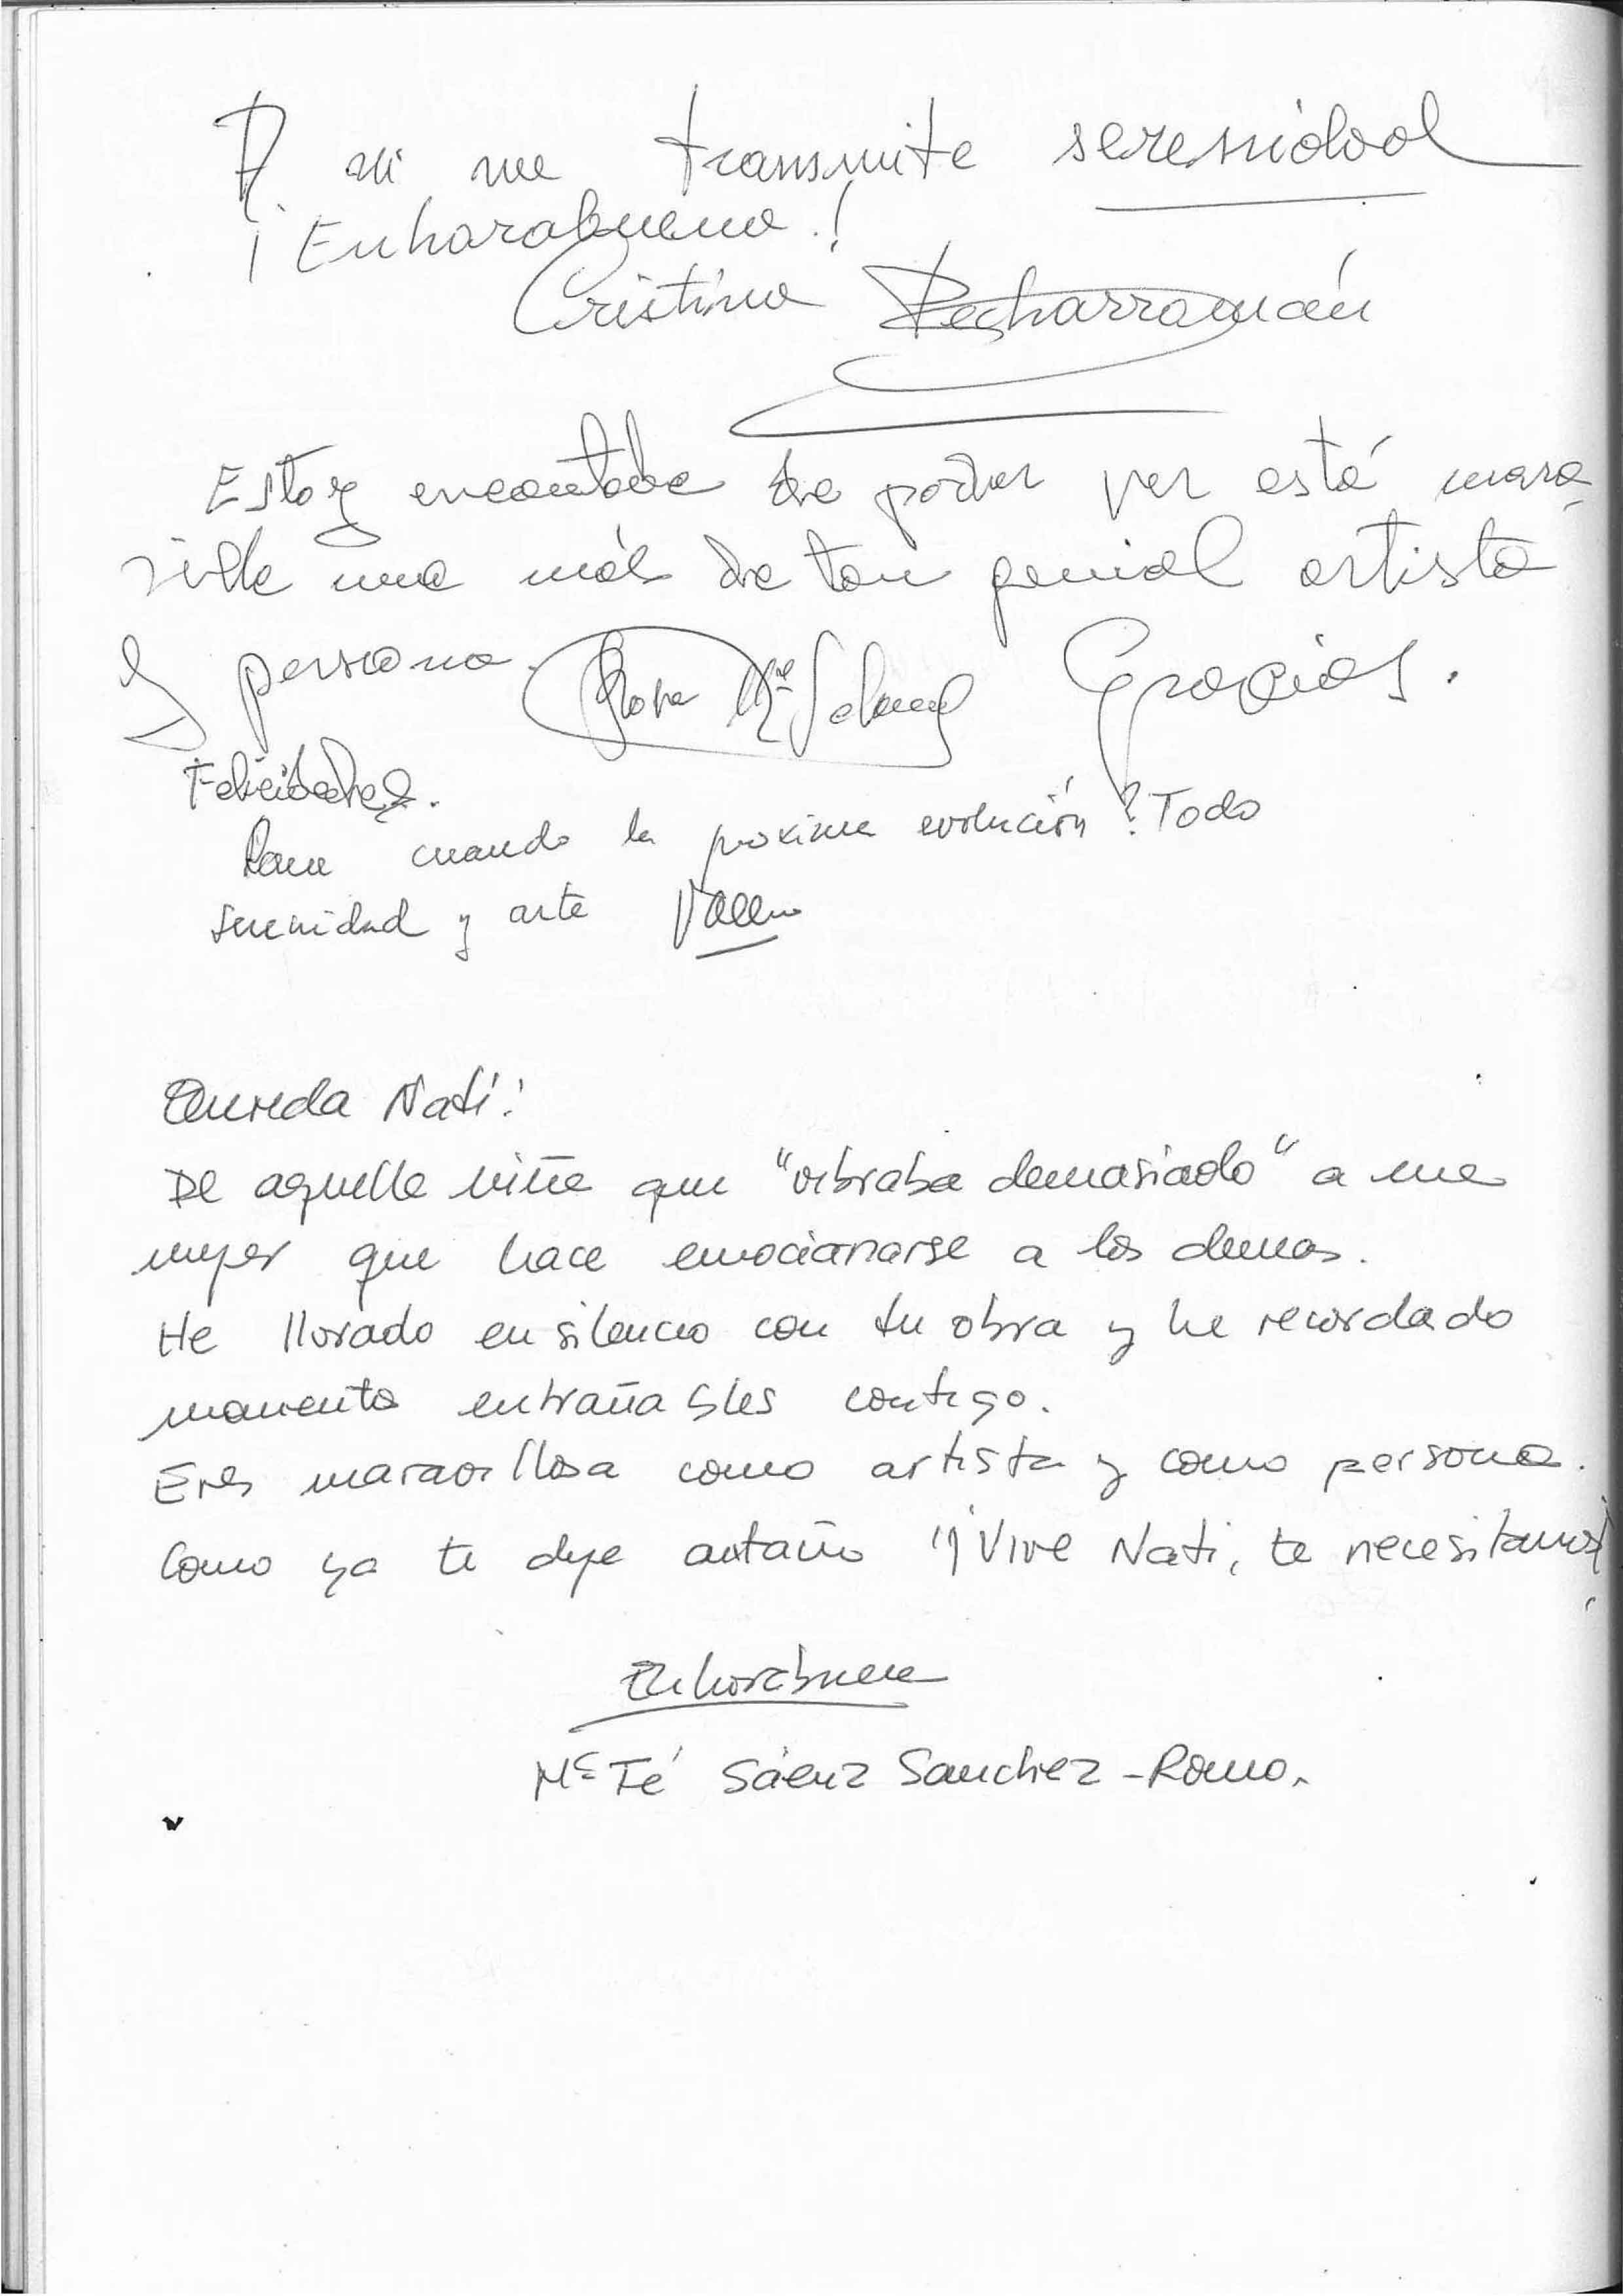 A mi me transmite serenidad
¡Enhorabuena!
Cristina Pecharromán
Estoy encantada de poder ver está mara
villa una más de tan genial artista
y persona. Rosa Mª Gracias.
Felicidades.
Para cuando la proxima evolución? Todo
serenidad y arte
Querida Nati:
De aquella niña que "vibraba demasiado" a una
mujer que hace emocionarse a los demas.
He llorado en silencio con tu obra y he recordado
momentos entrañables contigo.
Eres maravillosa como artista y como persona.
Como ya te dije antaño "¡Vive Nati, te necesitamos!
Enhorabuena
Mª Fé Sáenz Sanchez-Romo.